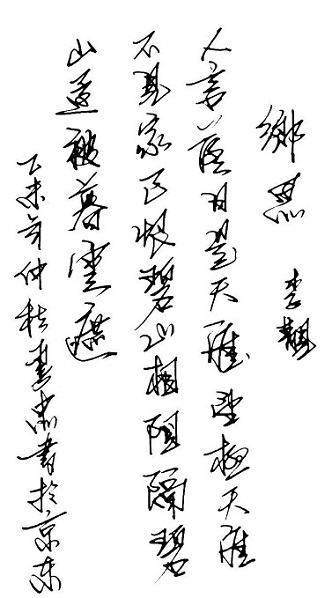 鄉思
李覯
人言落日是天涯望極天涯
不見家已恨碧山相阻隔碧
山還被暮雲遮
乙未年仲秋書於京東